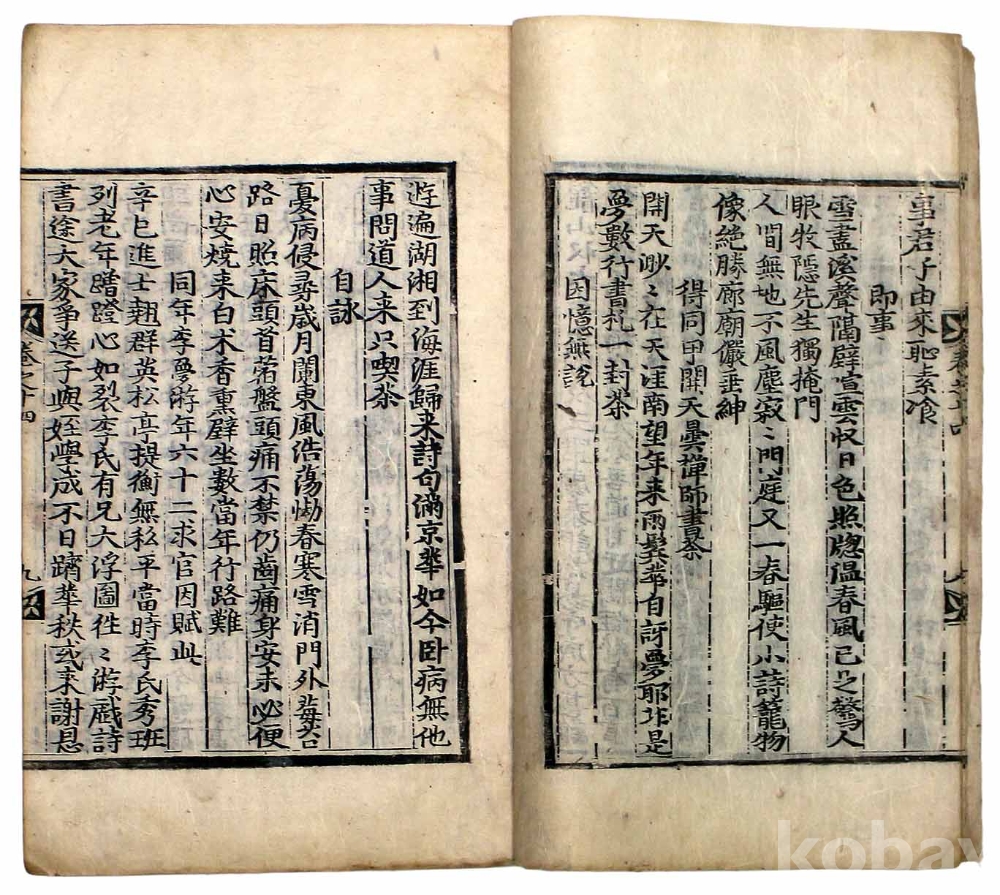 事君子由來恥素飡
即事
雪盡溪聲隔壁喧雲收日色照牕溫春風已是驚人
眼牧隱先生獨掩門
人間無地不風塵寂〻門庭又一春驅使小詩籠物
像絶勝廊廟儼垂紳
得同甲開天曇禪師書茶
開天渺〻在天涯南望年来兩鬢華自訝夢耶非是
夢數行書札一封茶
因憶無說
遊遍湖湘到海涯歸来詩句滿京華如今卧病無他
事問道人来只喫茶
自詠
憂病侵尋歲月闌東風浩蕩㘭春寒雪消門外莓苔
路日照床頭首蓿盤頭痛不禁仍齒痛身安未必便
心安燒来白术香熏壁坐數當年行路難
同年李夢游年六十二求官因賦此
辛巳進士翹群英松亭提衡無私平當時李氏秀班
列老年蹭蹬心如裂李氏有兄大浮圖徃〻游戲詩
書途大家爭送子與姪學成不日躋華秩或来謝恩
卷之十四
九
kobay